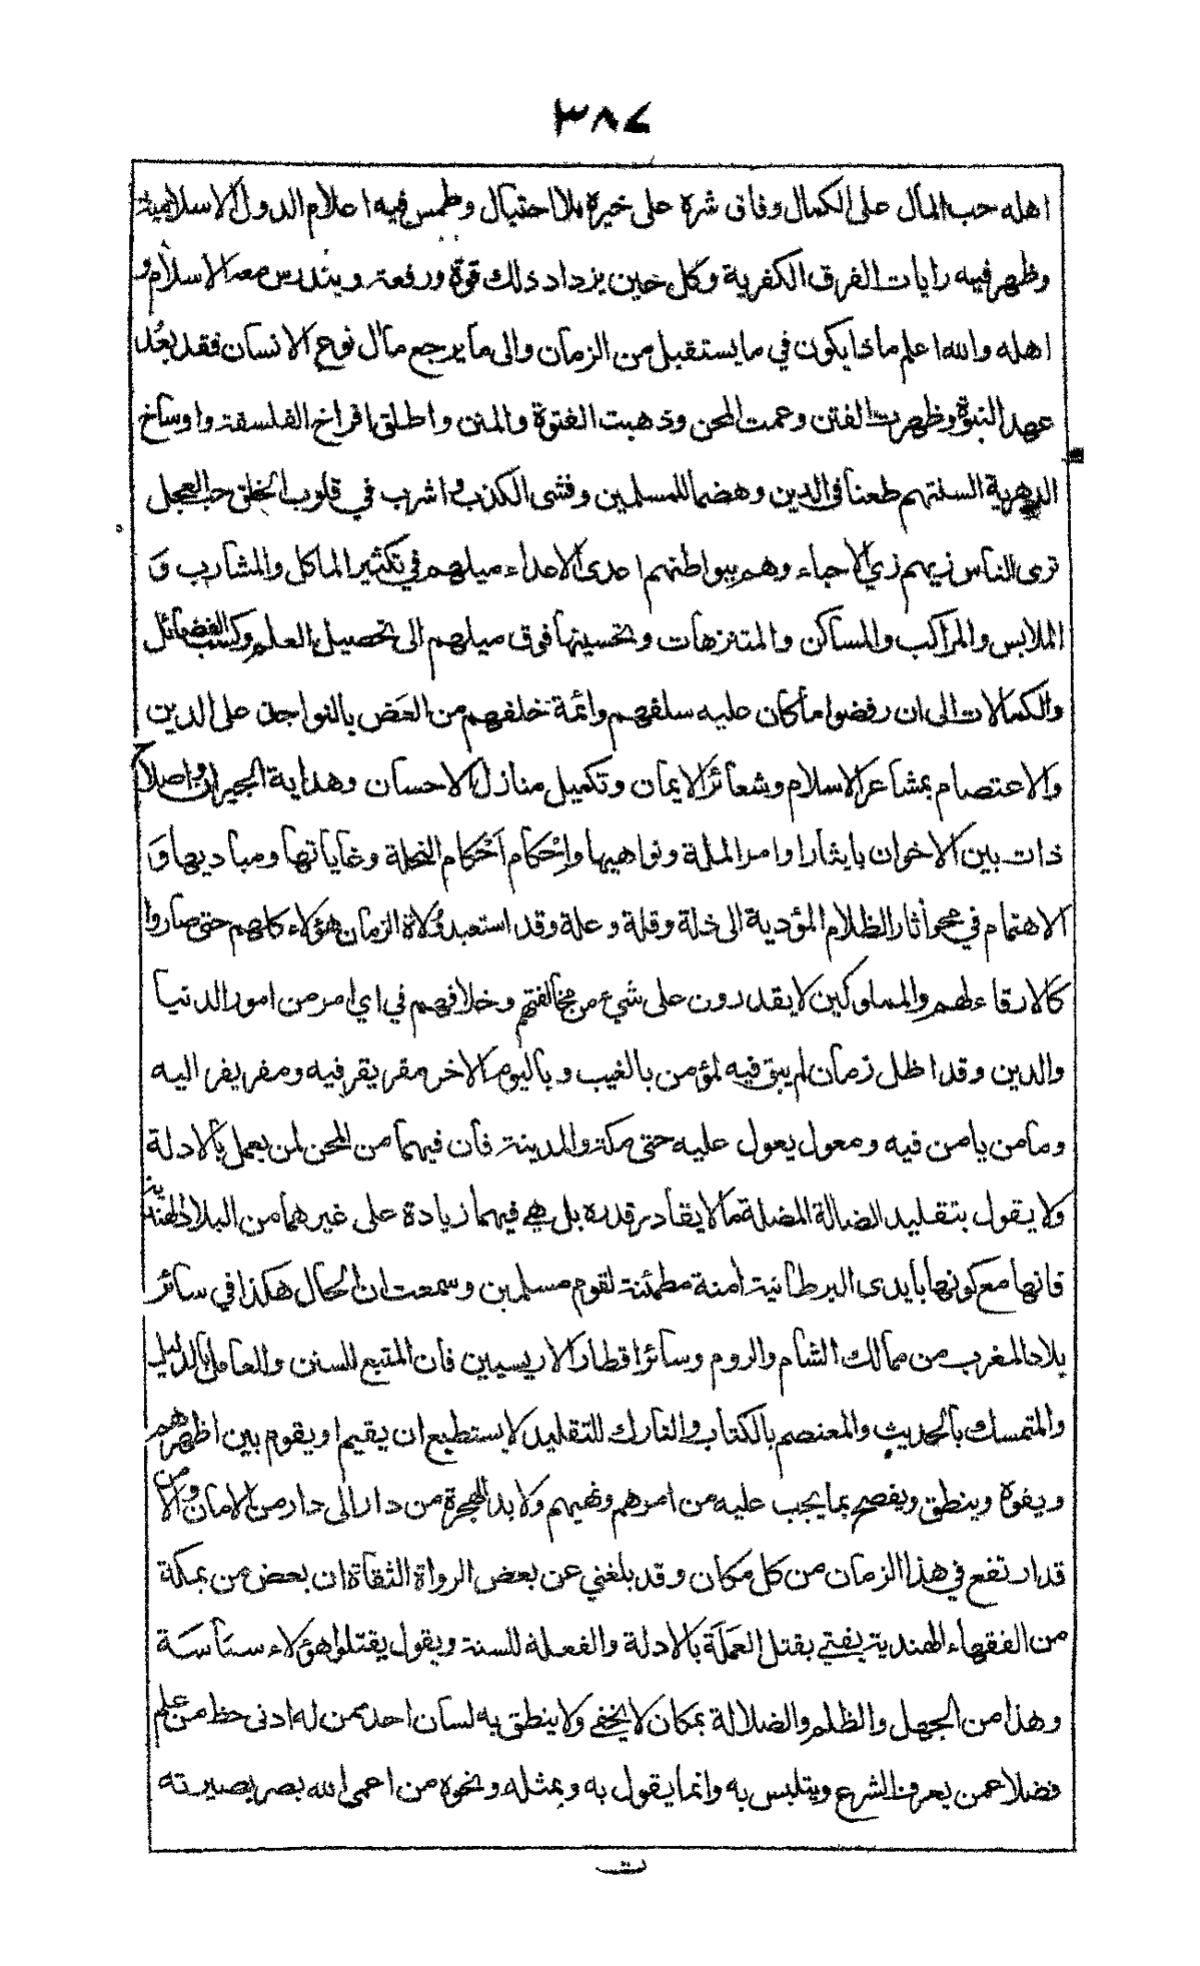 ٣٨٧
اهله حب المال على الكمال وفاق شره على خيره بلا احتيال وطمس فيه اعلام الدول الاسلامية
وظهر فيه رايات الفرق الكفرية وكل حين يزداد ذلك قوة ورفعة ويندرس معه الاسلام و
اهله والله اعلم ماذا يكون في ما يستقبل من الزمان والى ما يرجع مآل نوع الانسان فقد بعُد
عهد النبوة وظهرت الفتن وعمت المحن وذهبت الفتوة والمنن واطلق افراخ الفلسفة واوساخ
الدهرية السنتهم طعنا في الدين وهضما للمسلمين وفشى الكذب واشرب في قلوب الخلق حب العجل
ترى الناس زيهم زي الاحباء وهم ببواطنهم اعدى الاعداء ميلهم في تكثير الماكل والمشارب وَ
الملابس والمراكب والمساكن والمتنزهات وتحسينها فوق ميلهم الى تحصيل العلم وكسب الفضائل
والكمالات الى ان رفضوا ما كان عليه سلفهم وائمة خلفهم من العَض بالنواجذ على الدين
والاعتصام بمشاعر الاسلام وشعائر الايمان وتكميل منازل الاحسان وهداية الجيران واصلاح
ذات بين الاخوان بايثار اوامر الملة ونواهيها واِحْكام اَحْكام النحلة وغاياتها ومباديها وَ
الاهتمام في محو أثار الظلام المؤدية الى خلة وقلة وعلة وقد استعبد وُلاة الزمان هؤلاء كلهم حتى صاروا
كالارقاء لهم والمملوكين لا يقدرون على شيء من مخالفتهم وخلافهم في اي امر من امور الدنيا
والدين وقد اظل زمان لم يبق فيه لمؤمن بالغيب وباليوم الاخر مقر يقر فيه ومفر يفر اليه
ومامن يامن فيه ومعول يعول عليه حتى مكة والمدينة فان فيهما من المحن لمن يعمل بالادلة
ولا يقول بتقليد الضالة المضلة ما لا يقادر قدره بل هي فيهما زيادة على غيرهما من البلاد الهندية
فانها مع كونها بايدى البرطانية امنة مطمئنة لقوم مسلمين وسمعت ان الحال هكذا في سائر
بلاد المغرب من ممالك الشام والروم وسائر اقطار الاريسيين فان المتبع للسنن والعامل بالدليل
والمتمسك بالحديث والمعتصم بالكتاب والتارك للتقليد لا يستطيع ان يقيم او يقوم بين اظهرهم
ويفوه وينطق ويفصح بما يجب عليه من امرهم ونهيهم ولا بد الهجرة من دار الى دار من الامان والامن
قد ارتفع في هذا الزمان من كل مكان وقد بلغني عن بعض الرواة الثقاة ان بعض من بمكة
من الفقهاء الهندية يفتي بقتل العَمَلَة بالادلة والفعلة للسنة ويقول يقتلوا هؤلاء سَتَاسَة
وهذا من الجهل والظلم والضلالة بمكان لا يخفى ولا ينطق به لسان احد ممن له ادنى حظ من علم
فضلا عمن يعرف الشرع ويتلبس به وانما يقول به وبمثله ونحوه من اعمى الله بصر بصيرته